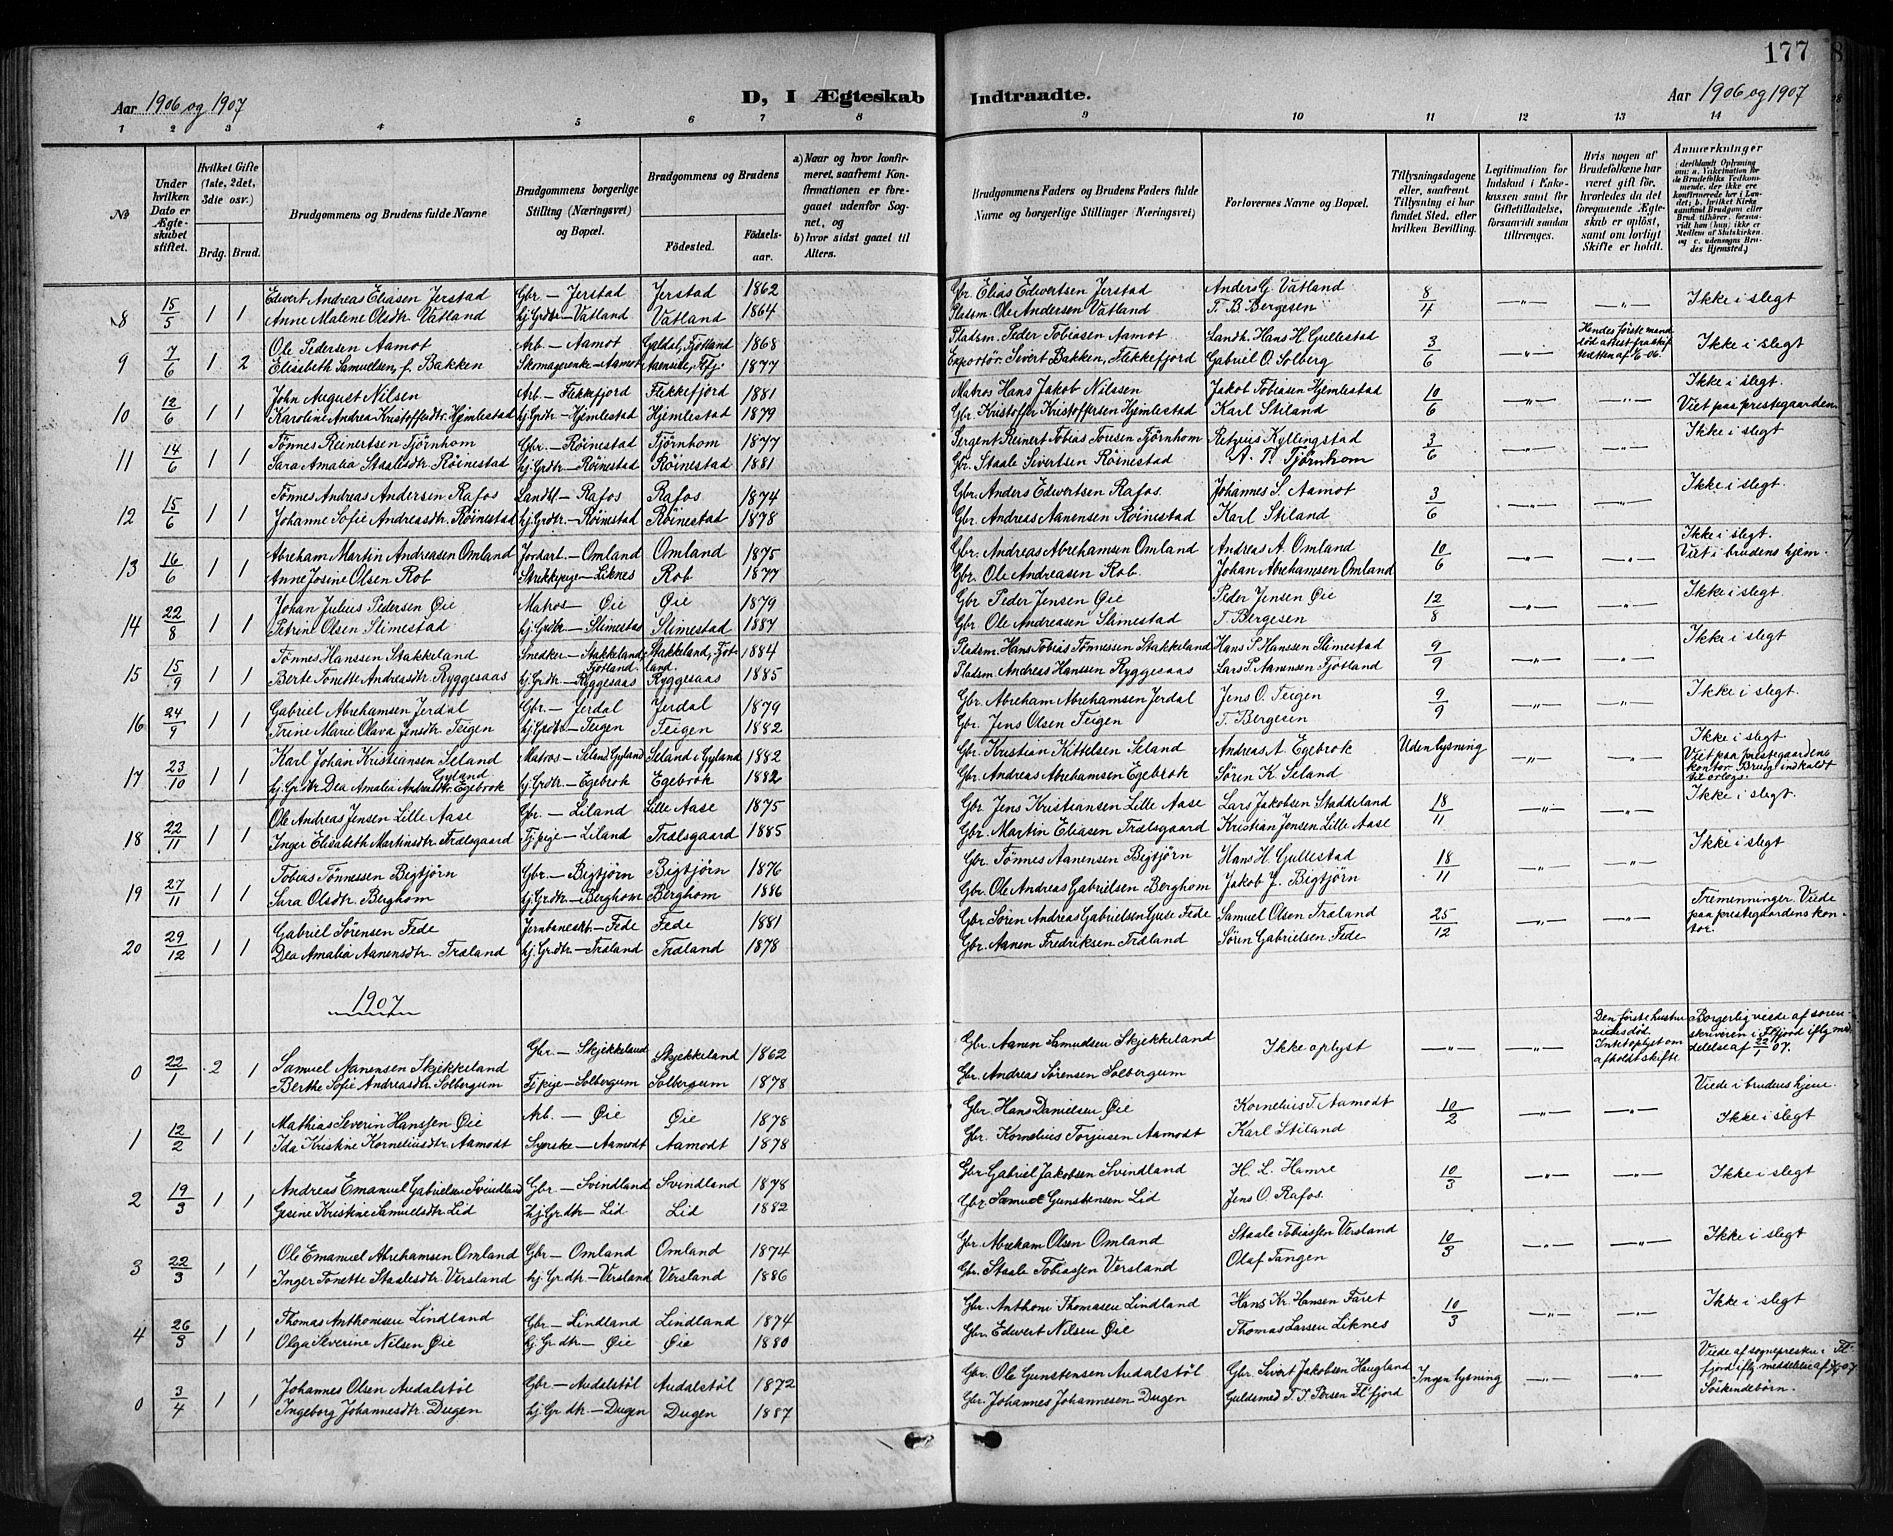 177
Aar 1906 og 1907
D, I Ægteskab Indtraadte.
Aar 1906 og 1907
1 2 3 4 5 6 7 8 9 10 11 12 13 14
No
Under hvilken Dato er Ægteskabet stiftet.
Hvilket Gifte (1ste, 2det, 3die osv.)
Brdg. Brud.
Brudgommens og Brudens fulde Navne
Brudgommens borgerlige Stilling (Næringsvei) og Bopæl.
Brudgommens og Brudens
Fødested.
Fødselsaar.
a) Naar og hvor konfirmeret, saafremt Konfirmationen er foregaaet udenfor Sognet, og
b) hvor sidst gaaet til Alters.
Brudgommens Faders og Brudens Faders fulde Navne og borgerlige Stillinger (Næringsvei)
Forlovernes Navne og Bopæl.
Tillysningsdagene eller, saafremt Tillysning ei har fundet Sted, efter hvilken Bevilling.
Legitimation for Indskud i Enkekassen samt for Giftetilladelse, forsaavidt saadan tiltrænges.
Hvis nogen af Brudefolkene har været gift før, hvorledes da det foregaaende Ægteskab er opløst, samt om lovligt Skifte er holdt.
Anmerkninger
8 15/5 1 1 Edvert Andreas Eliasen Jerstad Gbr – Jerstad Jerstad 1862 Gbr. Elias Edvertsen Jerstad Anders G. Vatland 8/4 –„– –„– Ikke i slegt
Anne Malene Olsdtr. Vatland hj. Grdtr – Vatland Vatland 1864 Pladsm. Ole Andersen Vatland T. B. Bergesen
9 7/6 1 2 Ole Pedersen Aamot Arb – Aamot Galdal, Fjotland 1868 Pladsm. Peder Tobiasen Aamot Landh. Hans H. Gullestad 3/6 –„– Hendes første mand død Ikke i slegt
Elisabeth Samuelsen, f. Bakken Skomagerenke – Aamot 1877 Exportør. Sivert Bakken, Flekkefjord Gabriel O. Solberg
10 12/6 1 1 John August Nilsen Arb – Flekkefjord Flekkefjord 1881 Matros Hans Jakob Nilssen Jakob Tobiasen Hjemlestad 10/6 –„– –„– Ikke i slegt.
Karoline Andrea Kristoffedtr. Hjemlestad hj. Grdtr – Hjemlestad Hjemlestad 1879 Gbr. Kristoffer Kristoffersen Hjemlestad Karl Stiland Viet paa prestegaarden.
11 14/6 1 1 Tønnes Reinertsen Tjørnhom Gbr – Røinestad Tjørnhom 1877 Sergent Reinert Tobias Toresen Tjørnhom Retzius Kyllingstad 3/6 –„– –„– Ikke i slegt
Sara Amalia Staalesdtr. Røinestad hj. Grdtr – Røinestad Røinestad 1881 Gbr. Staale Sivertsen Røinestad A. T. Tjørnhom
12 15/6 1 1 Tønnes Andreas Andersen Rafos Landbr. – Rafos Rafos 1874 Gbr. Anders Edvertsen Rafos. Johannes S. Aamot 3/6 –„– –„– Ikke i slegt.
Johanne Sofie Andreasdtr. Røinestad hj. Grdtr. – Røinestad Røinestad 1878 Gbr. Andreas Aanensen Røinestad Karl Stiland
13 16/6 1 1 Abreham Martin Andreasen Omland Jordarb. – Omland Omland 1875 Gbr. Andreas Abrehamsen Omland Andreas A. Omland 10/6 –„– –„– Ikke i slegt.
Anne Josine Olsen Rob Strikkepige – Liknes Rob 1877 Gbr. Ole Andreasen Rob. Johan Abrehamsen Omland Viet i brudens hjem.
14 22/8 1 1 Johan Julius Pedersen Øie Matros – Øie Øie 1879 Gbr Peder Jensen Øie Peder Jensen Øie 12/8 –„– –„– Ikke i slegt.
Petrine Olsen Slimestad hj. Grdtr – Slimestad Slimestad 1887 Gbr Ole Andreasen Slimestad T. Bergesen
15 15/9 1 1 Tønnes Hanssen Stakkeland Snedker – Stakkeland, Fjotland Stakkeland, Fjotland. 1884 Pladsm. Hans Tobias Tønnessen Stakkeland Hans S. Hanssen Slimestad 9/9 –„– –„– Ikke i slegt
Berte Tonette Andreasdtr Ryggesaas hj. Grdtr – Ryggesaas Ryggesaas 1885 Pladsm Andreas Hanssen Ryggesaas Lars P. Aanensen Fjotland
16 24/9 1 1 Gabriel Abrehamsen Jerdal Gbr. – Jerdal Jerdal 1879 Gbr. Abreham Abrehamsen Jerdal Jens O. Teigen 9/9 –„– –„– Ikke i slegt.
Trine Marie Olava Jensdtr. Teigen hj. Grdtr – Teigen Teigen 1882 Gbr. Jens Olsen Teigen T. Bergesen
17 23/10 1 1 Karl Johan Kristiansen Seland Gyland Matros – Seland, Gyland Seland i Gyland 1882 Gbr. Kristian Kittelsen Seland Andreas A. Egebrok Uden lysning –„– –„– Ikke i slegt.
hj. Grdtr Dea Amalia Andreasdtr. Egebrok hj. Grdtr – Egebrok Egebrok 1882 Gbr. Andreas Abrehamsen Egebrok Søren K. Seland Viet paa prestegaardens kontor. Brudg. indkaldt til orlogs.
18 22/11 1 1 Ole Andreas Jensen Lille Aase Gbr. – Liland Lille Aase 1875 Gbr Jens Kristiansen Lille Aase Lars Jakobsen Staddeland 18/11 –„– –„– Ikke i slegt.
Inger Elisabeth Martinsdtr. Trælsgaard Tj.pige – Liland Trælsgaard 1885 Gbr. Martin Eliasen Trælsgaard Kristian Jensen Lille Aase
19 27/11 1 1 Tobias Tønnessen Bigtjørn Gbr. – Bigtjørn Bigtjørn 1876 Gbr Tønnes Aanensen Bigtjørn Hans H. Gullestad 18/11 –„– –„– Ikke i slegt
Sara Olsdtr. Berghom hj. Grdtr. – Berghom Berghom 1886 Gbr Ole Andreas Gabrielsen Berghom Jakob J. Bigtjørn
20 29/12 1 1 Gabriel Sørensen Fede Jernbanearb. – Fede Fede 1881 Gbr Søren Andreas Gabrielsen Fede Samuel Olsen Træland 25/12 –„– –„– Tremenninger. Viede paa prestegaardens kontor.
Dea Amalia Aanensdtr. Træland hj. Grdtr. – Træland Træland 1878 Gbr. Aanen Fredriksen Træland Søren Gabrielsen Fede
1907
0 22/1 2 1 Samuel Aanensen Skjekkeland Gbr – Skjekkeland Skjekkeland 1862 Gbr. Aanen Samuelsen Skjekkeland Ikke oplyst –„– –„– Den første hustru død. Intet oplyst om afholdt skifte. Borgerlig viede af sorenskriveren i Fl.fjord iflg meddelelse af 22/1 07.
Berthe Sofie Andreasdtr. Solbergum Tj.pige – Solbergum Solbergum 1878 Gbr. Andreas Sørensen Solbergum
1 12/2 1 1 Mathias Severin Hanssen Øie Arb. – Øie Øie 1878 Gbr. Hans Danielsen Øie Kornelius T. Aamodt 10/2 –„– –„– Viede i brudens hjem.
Ida Kristine Kornelius dtr. Aamodt Syerske – Aamodt Aamodt 1878 Gbr. Kornelius Torjusen Aamodt Karl Stiland Ikke i slegt
2 19/3 1 1 Andreas Emanuel Gabrielsen Svindland Gbr – Svindland Svindland 1878 Gbr Gabriel Jakobsen Svindland H. L. Hamre 10/3 –„– –„– Ikke i slegt
Gesine Kristine Samuelsdtr. Lid hj. Grdtr – Lid Lid 1882 Gbr. Samuel Gunstensen Lid Jens O. Rafos.
3 22/3 1 1 Ole Emanuel Abrehamsen Omland Gbr – Omland Omland 1874 Gbr. Abreham Olsen Omland Staale Tobiassen Versland 10/3 –„– –„– Ikke i slegt
Inger Tonette Staalesdtr. Versland hj. Grdtr – Versland Versland 1886 Gbr. Staale Tobiassen Versland Olaf Tangen
4 26/3 1 1 Thomas Anthonisen Lindland Gbr – Lindland Lindland 1874 Gbr. Anthoni Thomasen Lindland Hans Kr. Hansen Faret 10/3 –„– –„– Ikke i slegt
Olga Severine Nilsen Øie hj. Grdtr – Øie Øie 1880 Gbr. Edvert Nilsen Øie Thomas Larsen Liknes
0 3/4 1 1 Johannes Olsen Audalstøl Gbr – Audalstøl Audalstøl 1872 Gbr. Ole Gunstensen Audalstøl Gbr. Sivert Jakobsen Haugland Ingen lysning –„– –„– Viede af sogneprestin i Fl.fjord iflg. meddelelse af
Ingeborg Johannesdtr. Dugen hj. Grdtr – Dugen Dugen 1887 Gbr. Johannes Johannesen Dugen Guldsmed T. I. Persen Fl'fjord Søskendebørn.